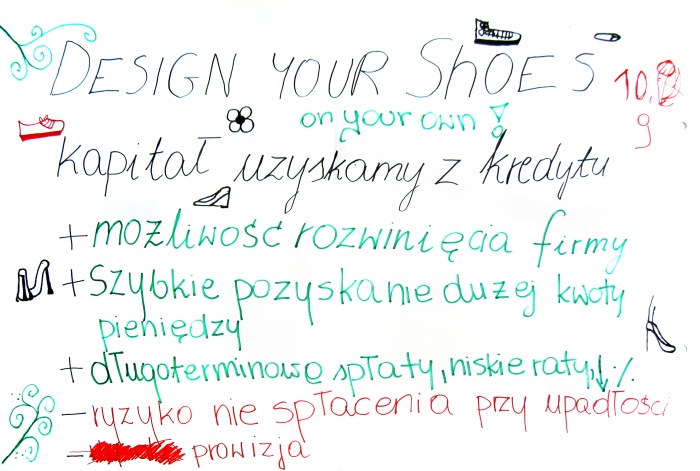 DESIGN YOUR ShOES
10,
9
on your own !
kapitał uzyskamy z kredytu
+ możliwość rozwinięcia firmy
+ Szybkie pozyskanie dużej kwoty
pieniędzy
+ długoterminowe spłaty, niskie raty, ↓ %
- ryzyko nie spłacenia przy upadłości
- prowizja